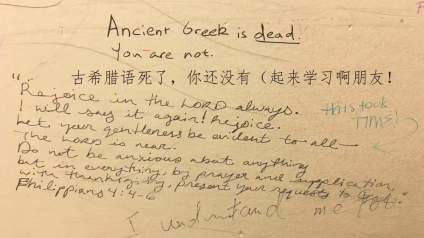 Ancient Greek is dead.
You are not.
古希腊语死了，你还没有（起来学习啊朋友！
"Rejoice in the LORD always.
I will say it again! Rejoice.
Let your gentleness be evident to all—
The LORD is near.
Do not be anxious about anything
but in everything, by prayer and supplication,
with thanksgiving, present your requests to God."
Philippians 4:4-6
this took
TIME!
I understand me